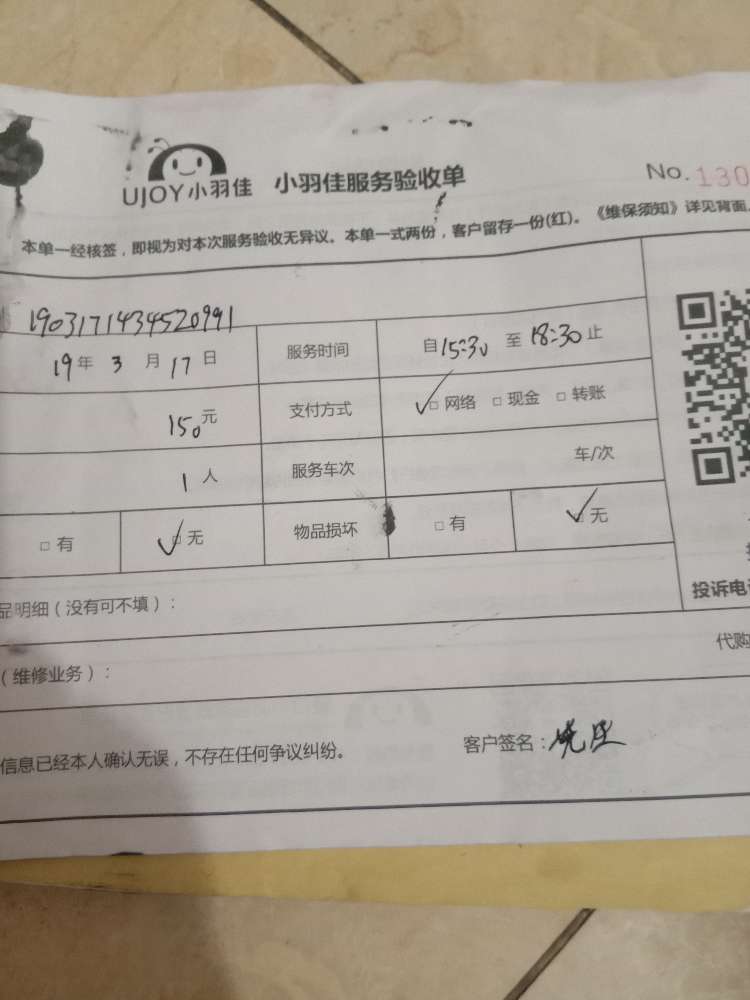 UJOY小羽佳 小羽佳服务验收单 No.130
本单一经核签，即视为对本次服务验收无异议。本单一式两份，客户留存一份(红)。《维保须知》详见背面
1903171434520991
19年 3月 17日 服务时间 自15:30 至 18:30止
150元 支付方式 ✓□ 网络 □ 现金 □ 转账
1人 服务车次 车/次
□ 有 ✓□ 无 物品损坏 □ 有 ✓□ 无
投诉电
品明细（没有可不填）：
代购
（维修业务）：
信息已经本人确认无误，不存在任何争议纠纷。 客户签名：